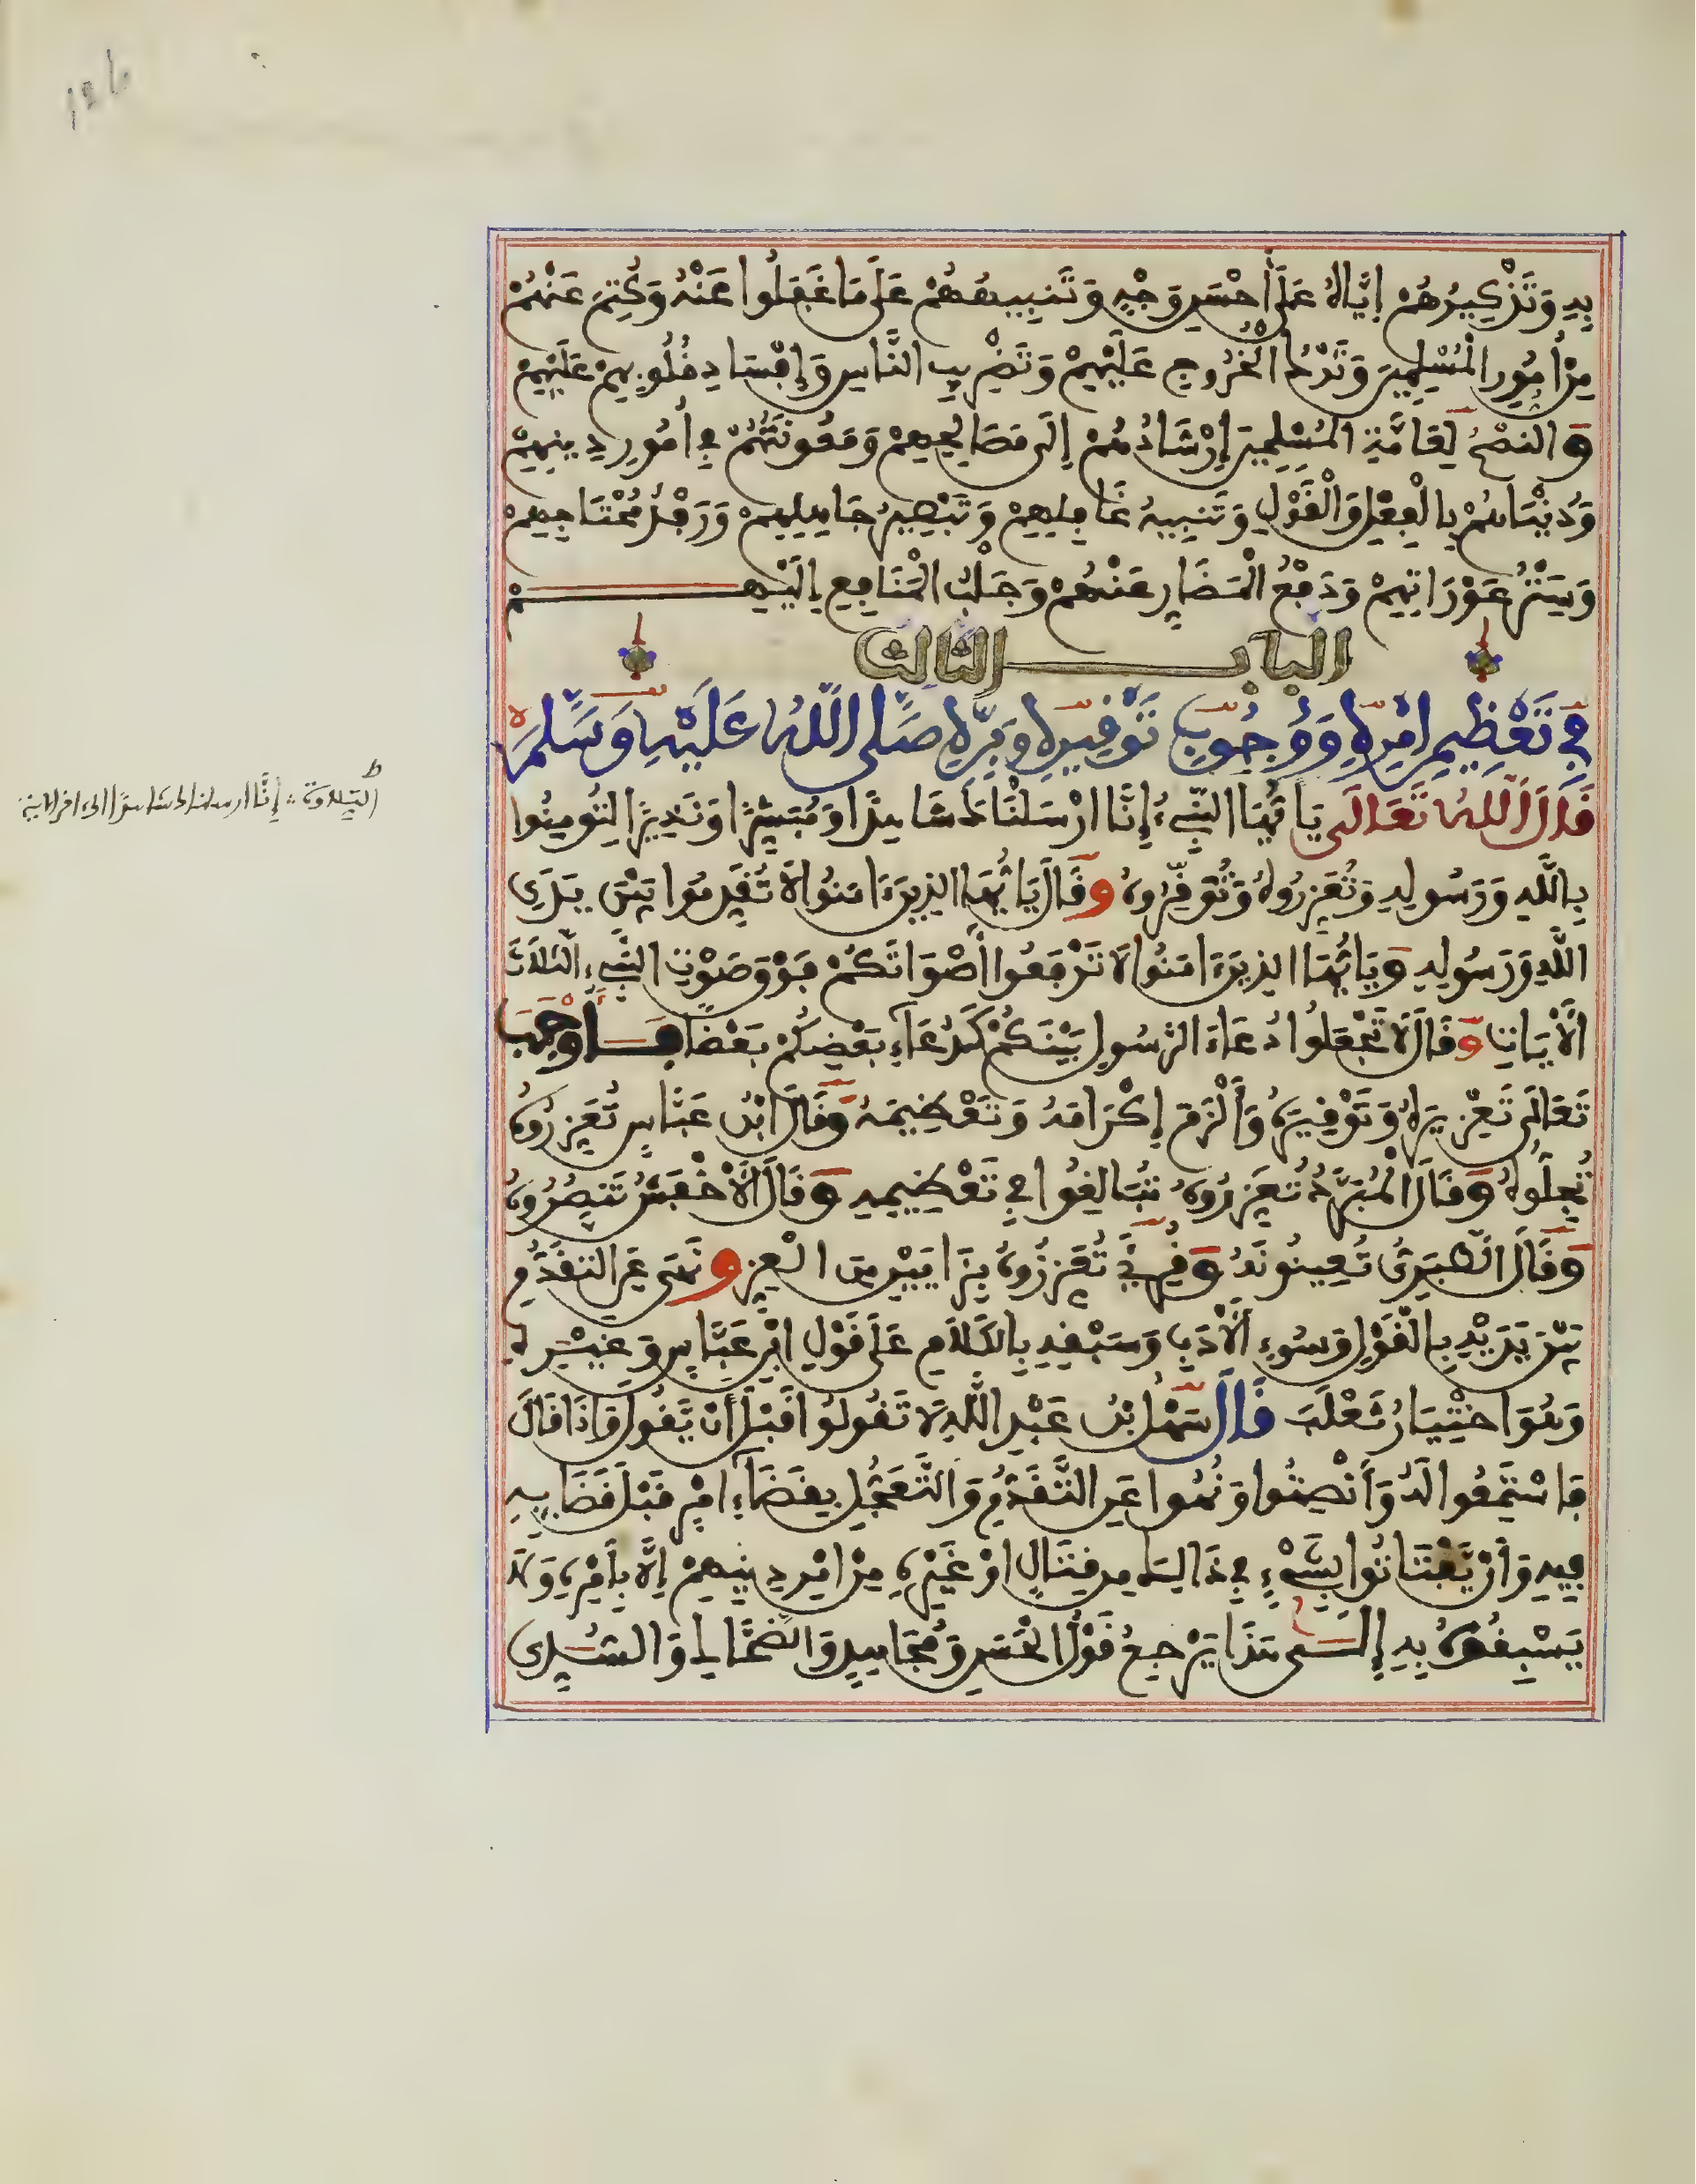 بِهِ وَتَذْكِيرُهُمْ إِيَّاهُ عَلَى أَحْسَنِ وَجْهٍ وَتَنْبِيهُهُمْ عَلَى مَا غَفَلُوا عَنْهُ وَكُتِمَ عَنْهُمْ
مِنْ أُمُورِ الْمُسْلِمِينَ وَتَرْكُ الْخُرُوجِ عَلَيْهِمْ وَتَضْرِيبِ النَّاسِ وَإِفْسَادِ قُلُوبِهِمْ عَلَيْهِمْ
وَالنُّصْحُ لِعَامَّةِ الْمُسْلِمِينَ إِرْشَادُهُمْ إِلَى مَصَالِحِهِمْ وَمَعُونَتُهُمْ فِي أُمُورِ دِينِهِمْ
وَدُنْيَاهُمْ بِالْفِعْلِ وَالْقَوْلِ وَتَنْبِيهُ غَافِلِهِمْ وَتَبْصِيرُ جَاهِلِهِمْ وَرَفْدُ مُحْتَاجِهِمْ
وَسَتْرُ عَوْرَاتِهِمْ وَدَفْعُ الْمَضَارِّ عَنْهُمْ وَجَلْبُ الْمَنَافِعِ إِلَيْهِمْ
الباب الثالث
فِي تَعْظِيمِ أَمْرِهِ وَوُجُوبِ تَوْقِيرِهِ وَبِرِّهِ صَلَّى اللَّهُ عَلَيْهِ وَسَلَّمَ
قَالَ اللَّهُ تَعَالَى يَا أَيُّهَا النَّبِيءُ إِنَّا أَرْسَلْنَاكَ شَاهِدًا وَمُبَشِّرًا وَنَذِيرًا لِتُومِنُوا
التلاوة إنّا ارسلناك شاهدا الى اخر الاية
بِاللَّهِ وَرَسُولِهِ وَتُعَزِّرُوهُ وَتُوَقِّرُوهُ وَقَالَ يَا أَيُّهَا الَّذِينَ ءَامَنُوا لَا تُقَدِّمُوا بَيْنَ يَدَيِ
اللَّهِ وَرَسُولِهِ وَيَا أَيُّهَا الَّذِينَ ءَامَنُوا لَا تَرْفَعُوا أَصْوَاتَكُمْ فَوْقَ صَوْتِ النَّبِيءِ الثَّلَاثَ
الْآيَاتِ وَقَالَ لَا تَجْعَلُوا دُعَاءَ الرَّسُولِ بَيْنَكُمْ كَدُعَاءِ بَعْضِكُمْ بَعْضًا فَأَوْجَبَ
تَعَالَى تَعْزِيرَهُ وَتَوْقِيرَهُ وَأَلْزَمَ إِكْرَامَهُ وَتَعْظِيمَهُ وَقَالَ ابْنُ عَبَّاسٍ تُعَزِّرُوهُ
تُجِلُّوهُ وَقَالَ الْمُبَرَّدُ تُعَزِّرُوهُ تُبَالِغُوا فِي تَعْظِيمِهِ وَقَالَ الْأَخْفَشُ تَنْصُرُوهُ
وَقَالَ الطَّبَرِيُّ تُعِينُونَهُ وَقُرِئَ تُعَزِّزُوهُ بِزَايَيْنِ مِنَ الْعِزِّ وَنَهَى عَنِ التَّقَدُّمِ
بَيْنَ يَدَيْهِ بِالْقَوْلِ وَسُوءِ الْأَدَبِ وَسَبْقِهِ بِالْكَلَامِ عَلَى قَوْلِ ابْنِ عَبَّاسٍ وَغَيْرِهِ
وَهُوَ اخْتِيَارُ ثَعْلَبَ قَالَ سَهْلُ بْنُ عَبْدِ اللَّهِ لَا تَقُولُوا قَبْلَ أَنْ يَّقُولَ وَإِذَا قَالَ
فَاسْتَمِعُوا لَهُ وَأَنْصِتُوا وَنُهُوا عَنِ التَّقَدُّمِ وَالتَّعَجُّلِ بِقَضَاءِ أَمْرٍ قَبْلَ قَضَايِهِ
فِيهِ وَأَنْ يَّفْتَاتُوا بِشَيْءٍ فِي ذَالِكَ مِن قِتَالٍ أَوْ غَيْرِهِ مِنْ أَمْرِ دِينِهِمْ إِلَّا بِأَمْرِهِ وَلَا
يَسْبِقُوهُ بِهِ إِلَى هَذَا يَرْجِعُ قَوْلُ الْحَسَنِ وَمُجَاهِدٍ وَالضَّحَّاكِ وَالسُّدِّي